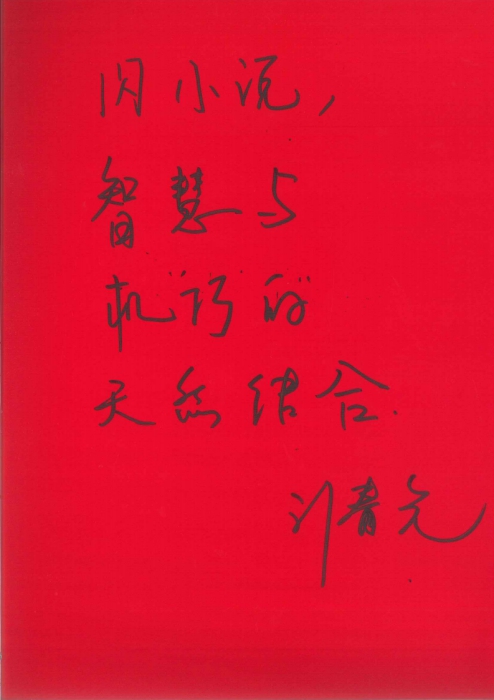 闪小说，
智慧与
机“巧”的
天然结合.
刘青元